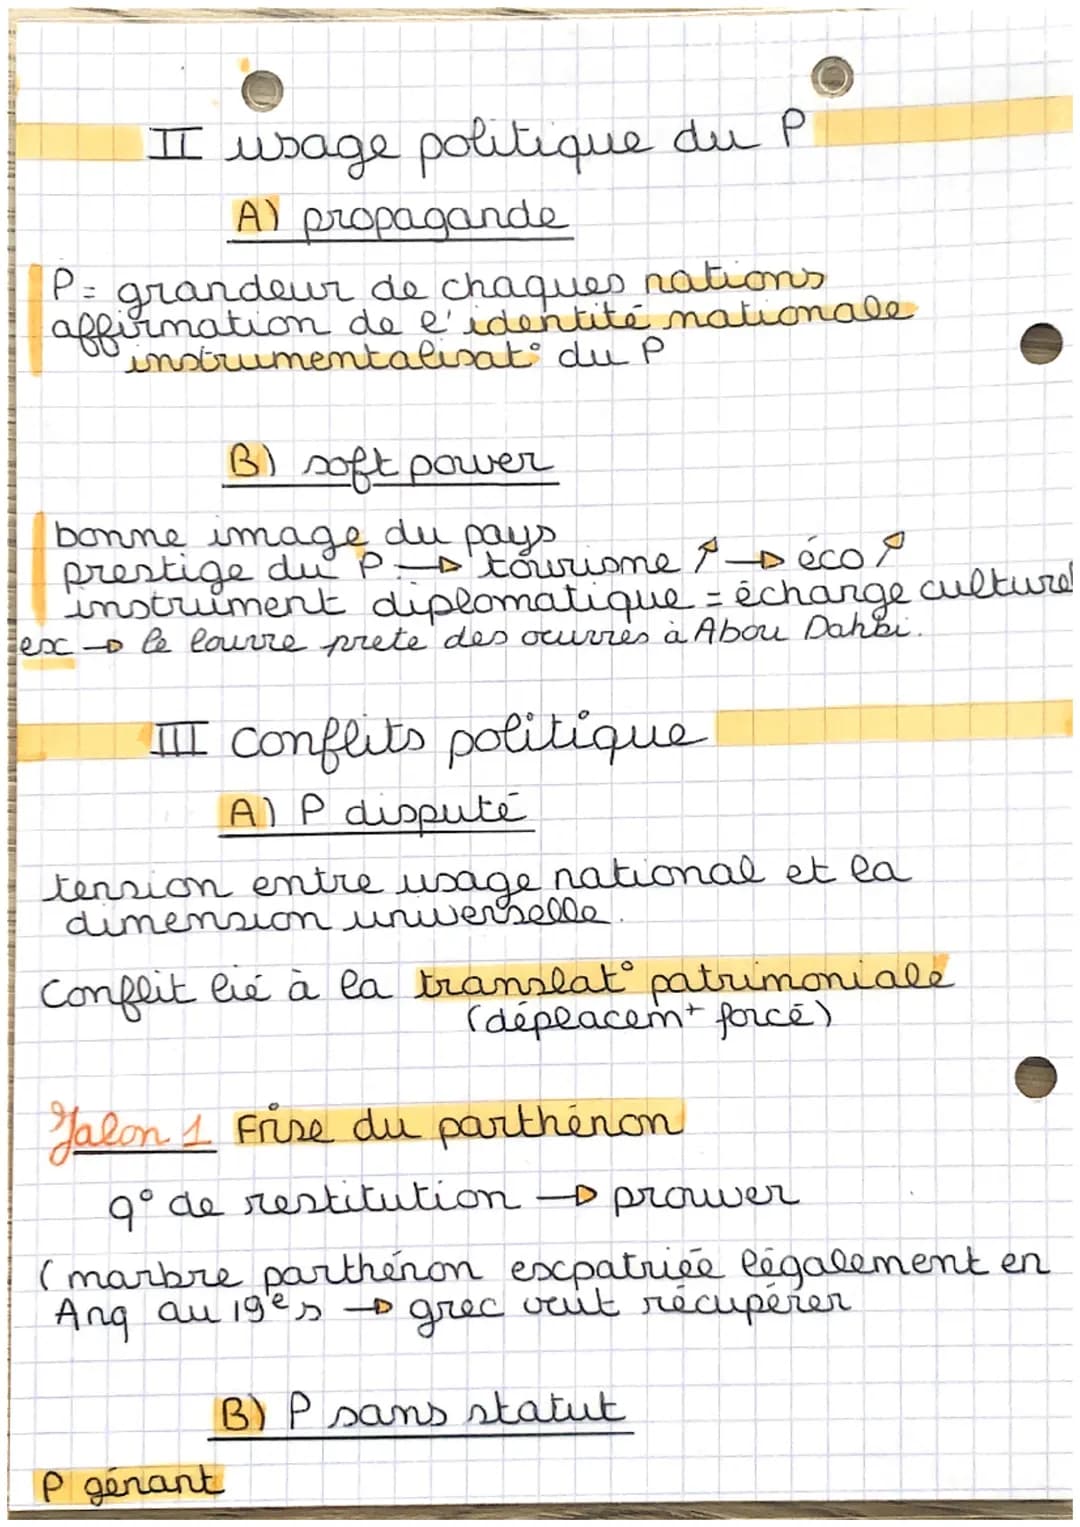 II usage politique du P
A) propagande
P = grandeur de chaques nations
affirmation de l'identité nationale
instrumentalisat° du P
B) soft power
bonne image du pays
prestige du P → tourisme ↗ → éco ↗
instrument diplomatique = échange culturel
ex → le louvre prete des oeuvres à Abou Dahbi.
III Conflits politique
A) P disputé
tension entre usage national et la
dimension universelle.
Conflit lié à la translat° patrimoniale
(déplacem^t forcé)
Jalon 1 Frise du parthénon
q° de restitution → prouver
(marbre parthénon expatriée légalement en
Ang au 19e s → grec veut récupérer
B) P sans statut
P gênant